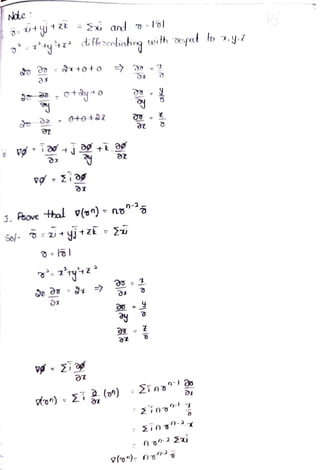 Note:
r̄ = xī + yj̄ + zk̄ = Σxī and r = |r̄|
r² = x²+y²+z² differentiating with respect to x,y,z
2r ∂r/∂x = 2x+0+0 ⇒ ∂r/∂x = x/r
2r ∂r/∂y = 0+2y+0 ∂r/∂y = y/r
2r ∂r/∂z = 0+0+2z ∂r/∂z = z/r
∇ø = ī ∂ø/∂x + j̄ ∂ø/∂y + k̄ ∂ø/∂z
∇ø = Σ ī ∂ø/∂x
1. Prove that ∇(rⁿ) = nrⁿ⁻² r̄
Sol- r̄ = xī + yj̄ + zk̄ = Σxī
r = |r̄|
r² = x²+y²+z²
2r ∂r/∂x = 2x ⇒ ∂r/∂x = x/r
∂r/∂y = y/r
∂r/∂z = z/r
∇ø = Σ ī ∂ø/∂x
∇(rⁿ) = Σ ī ∂/∂x (rⁿ) = Σ ī n rⁿ⁻¹ ∂r/∂x
= Σ ī n rⁿ⁻¹ x/r
= Σ ī n rⁿ⁻² x
= n rⁿ⁻² Σxī
∇(rⁿ) = n rⁿ⁻² r̄